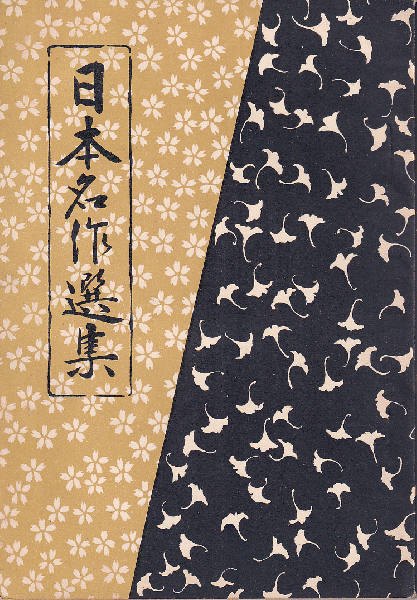 日本名作選集